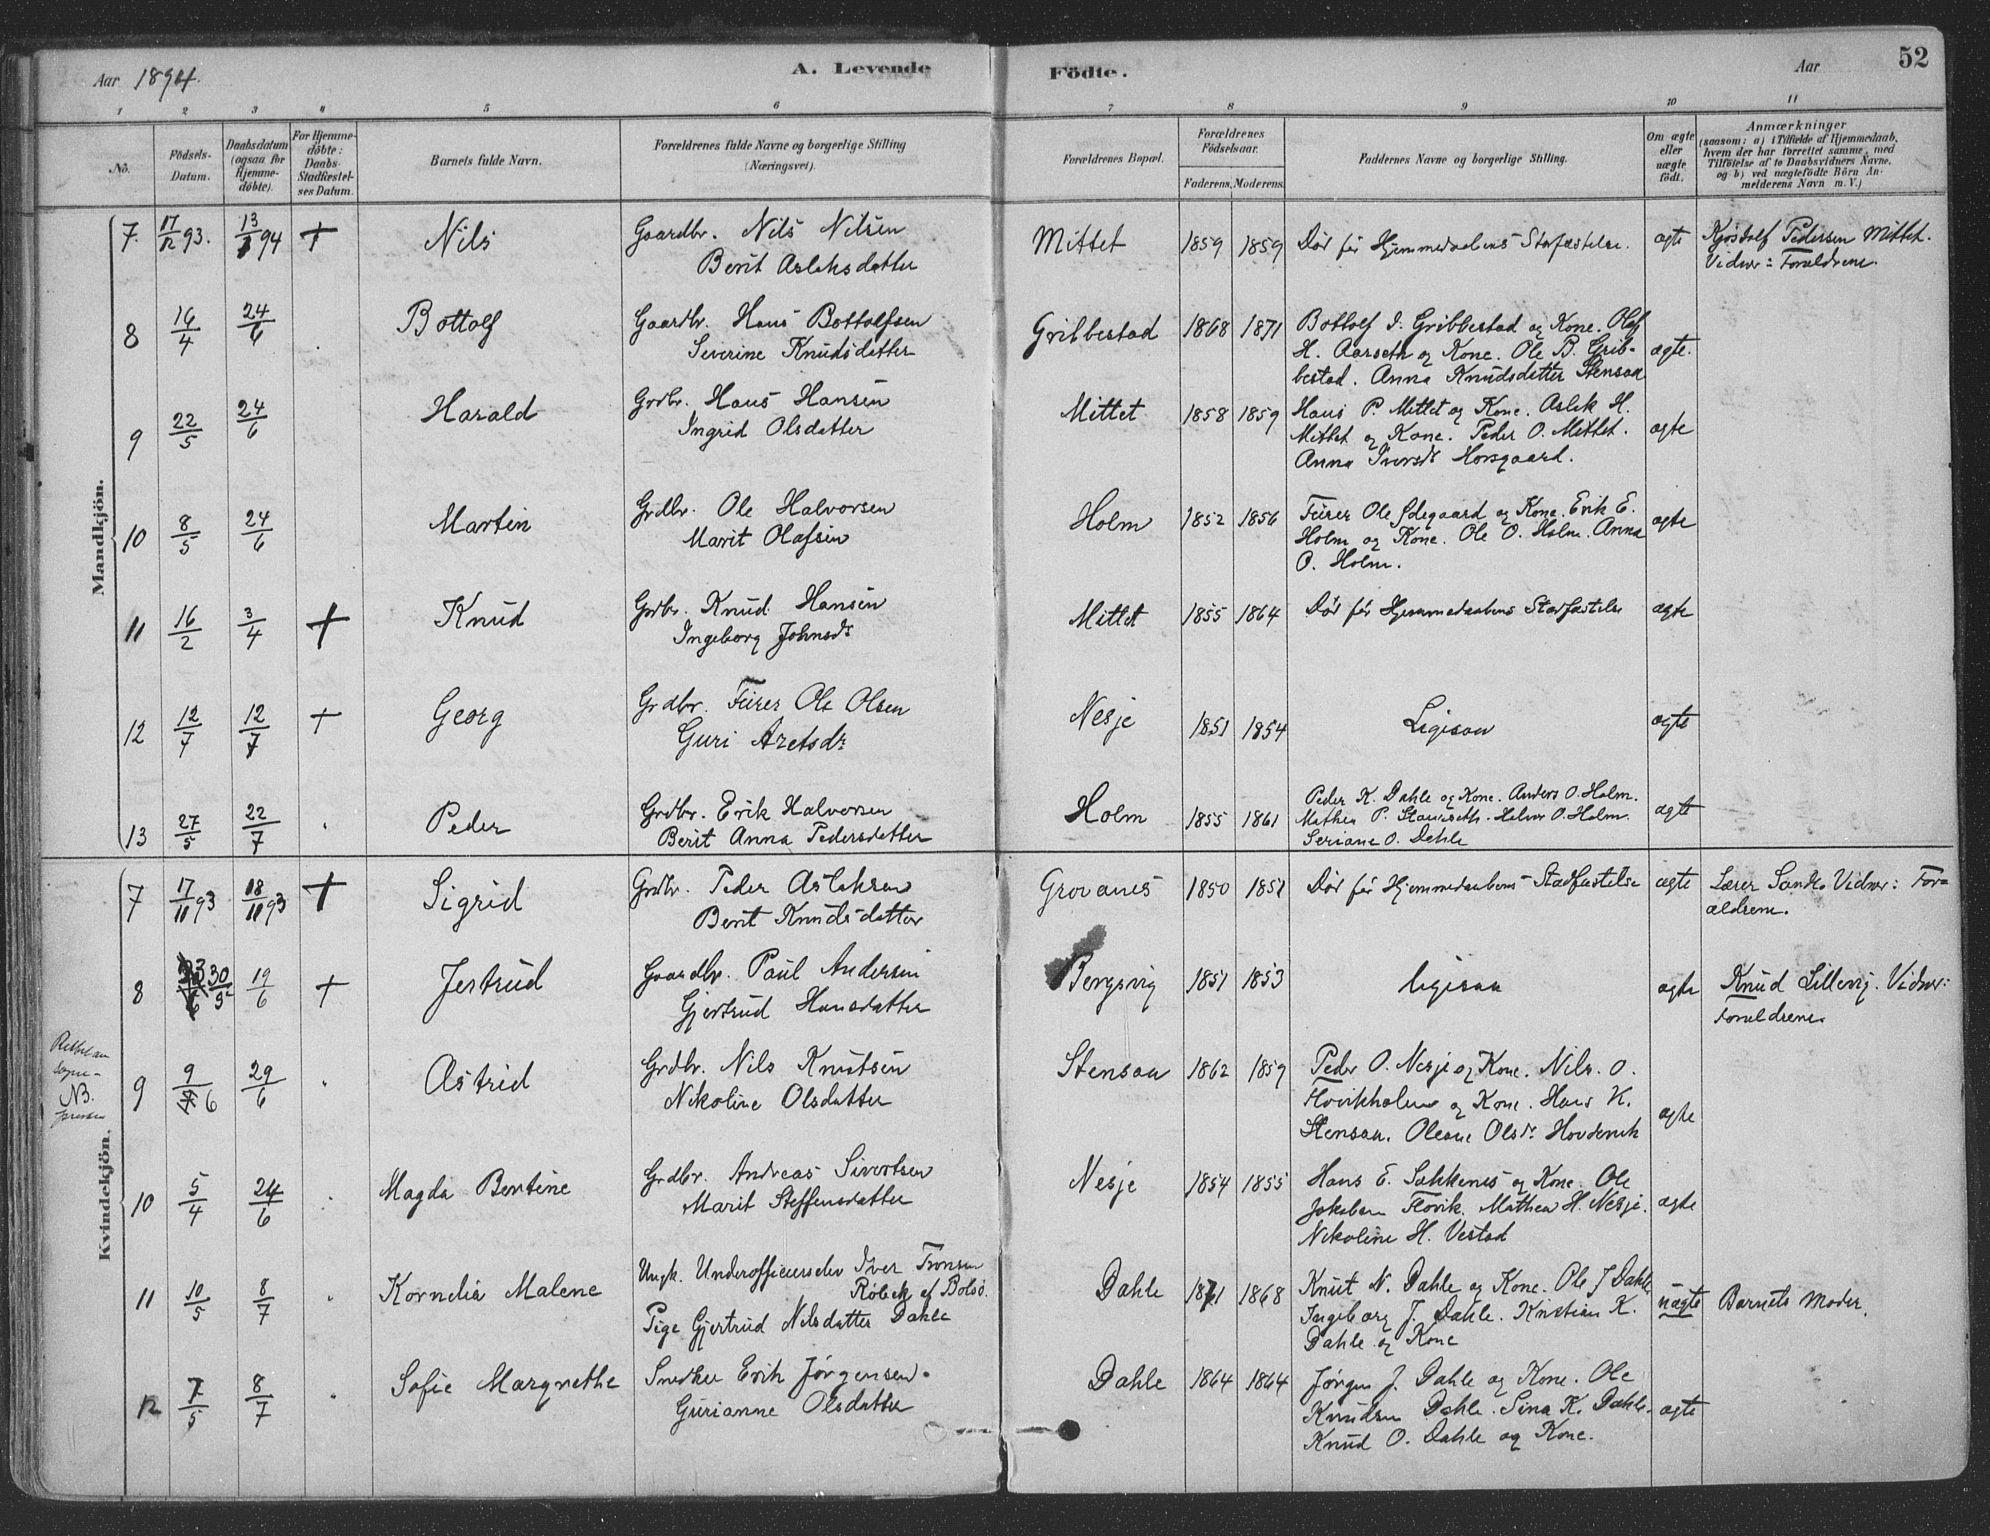 Aar 1894.
A. Levende
Födte.
Aar
52
1 2 3 4 5 6 7 8 9 10 11
No.
Födsels-
Datum.
Daabsdatum
(ogsaa for
Hjemme-
döbte).
For Hjemme-
döbte:
Daabs-
Stadfæstel-
ses Datum.
Barnets fulde Navn.
Forældrenes fulde Navne og borgerlige Stilling
(Næringsvei).
Forældrenes Bopæl.
Forældrenes
Födselsaar.
Faderens. Moderens.
Faddernes Navne og borgerlige Stilling.
Om ægte
eller
uægte
födt.
Anmærkninger
(saasom: a) i Tilfælde af Hjemmedaab,
hvem der har forrettet samme, med
Tilföielse af to Daabsvidners Navne,
og b) ved uægtefödte Börn An-
melderens Navn m. V.)
Mandkjön.
7. 17/12 93. 13/1 94 + Nils Gaardbr. Nils Nilsen Mittet 1859 1859 Död før Hjemmedaabens Stafæstelse. ægte Pedersen Mittet.
Berit Aslaksdatter Vidner: Forældrene.
8 16/4 24/6 Bottolf Gaardbr. Hans Bottolfsen Gribbestad 1868 1871 Bottolf I. Gribbestad og Kone. Olaf
Severine Knudsdatter H. Aarseth og Kone. Ole B. Grib- ægte.
bestad. Anna Knudsdatter Stensaa
9 22/5 24/6 Harald Grdbr. Hans Hansen Mittet 1858 1859 Hans P. Mittet og Kone. Aslak H.
Ingrid Olsdatter Mittet og Kone. Peder O. Mittet. ægte
Anna Iversdr Horsgaard.
10 8/5 24/6 Martin Grdbr. Ole Halvorsen Holm 1852 1856 Fører Ole Ødegaard og Kone. Erik E. ægte
Marit Olafsen Holm og Kone. Ole O. Holm. Anna
O. Holm.
11 16/2 3/4 + Knud Grdbr. Knud Hansen Mittet 1855 1864 Död før Hjemmedaabens Stadfæstelse ægte
Ingeborg Johnsdr
12 12/7 12/7 + Georg Grdbr. Fører Ole Olsen Nesje 1851 1854 Ligesaa ægte
Guri Aretsdr
13 27/5 22/7 Peder Grdbr. Erik Halvorsen Holm 1855 1861 Peder K. Dahle og Kone. Anders O. Holm. ægte
Berit Anna Pedersdatter Mathea P. Halvor O. Holm.
Seriane O. Dahle
Kvindekjön.
7 17/11 93 18/11 93 + Sigrid Grdbr. Peder Aslaksen Grovanes 1850 1851 Död før Hjemmedaabens Stadfæstelse ægte Lærer Vidner: For-
Berit Knudsdatter ældrene.
8 30/5 19/6 + Jertrud Gaardbr. Paul Andersen Bergsvig 1851 1853 ligesaa ægte Knud Lillevig. Vidner:
Gjertrud Hansdatter Forældrene.
NB.
9 9/6 29/6 Astrid Grdbr. Nils Knutsen Stensaa 1862 1859 Peder O. Nesje og Kone. Nils O.
Nikoline Olsdatter og Kone. Hans K. ægte
Stensaa. Oleane Olsdr Hovdenak
10 5/4 24/6 Magda Bertine Grdbr. Andreas Sivertsen Nesje 1854 1855 Hans E. Sekkenes og Kone. Ole
Marit Steffensdatter Jakobsen Flovik. Mathea H. Nesje. ægte
Nikoline H. Vestad
11 10/5 8/7 Kornelia Malene Ungk. Underofficerselev Iver Tronsen Dahle 1871 1868 Knut N. Dahle og Kone. Ole J Dahle
Röbek af Bolsö. Ingeborg J. Dahle. Kristian K. uægte Barnets Moder.
Pige Gjertrud Nilsdatter Dahle Dahle og Kone
12 7/5 8/7 Sofie Margrethe Snedker Erik Jørgensen. Dahle 1864 1864 Jørgen J. Dahle og Kone. Ole
Gurianne Olsdatter Knudsen Dahle. Sina K. Dahle. ægte
Knud O. Dahle og Kone.